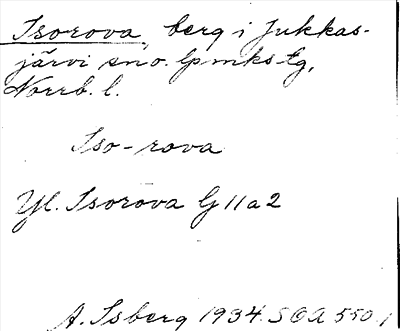 Isorova, berg i Jukkas-
järvi sno. lpmks tg,
Norrb. l.
Iso-rova
Yl. Isorova G 11 a 2
A. Isberg 1934. SOA 550.1